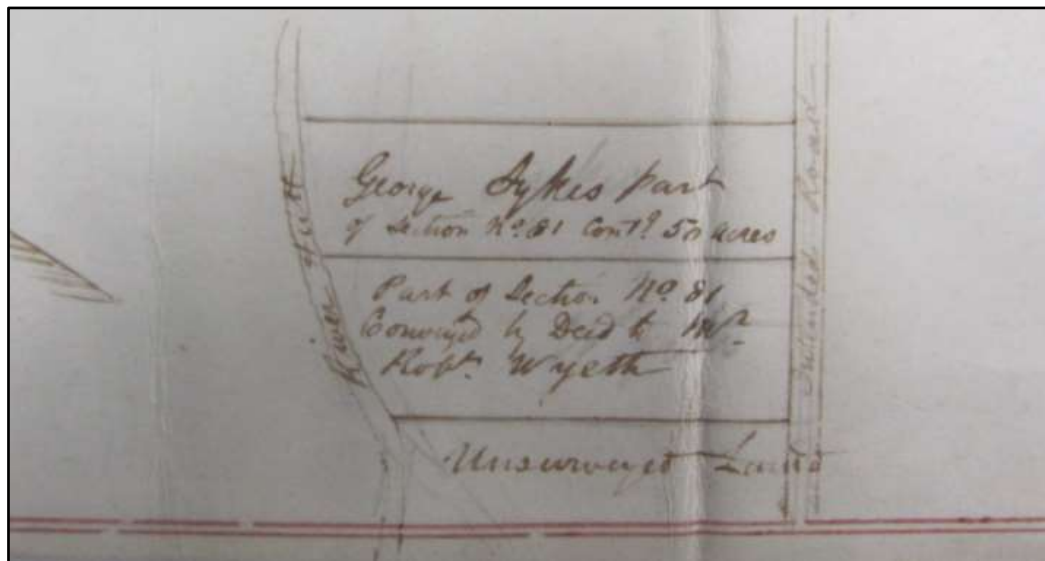 George Sykes Part
of Section No. 81 Contg. 50 acres
Part of Section No 81
Conveyed by Deed to Mr
Robt. Wyeth
Unsurveyed Land
River Hutt
Intended Road